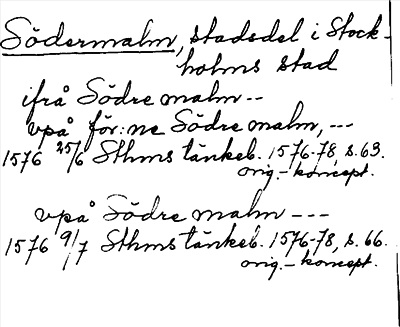 Södermalm, stadsdel i Stock-
holms stad
ifrå Södre malm --
vpå för:ne Södre malm, ---
1576 25/6 Sthms tänkeb. 1576-78, s. 63.
orig.-koncept.
vpå Södre malm ---
1576 9/7 Sthms tänkeb. 1576-78, s. 66.
orig.-koncept.